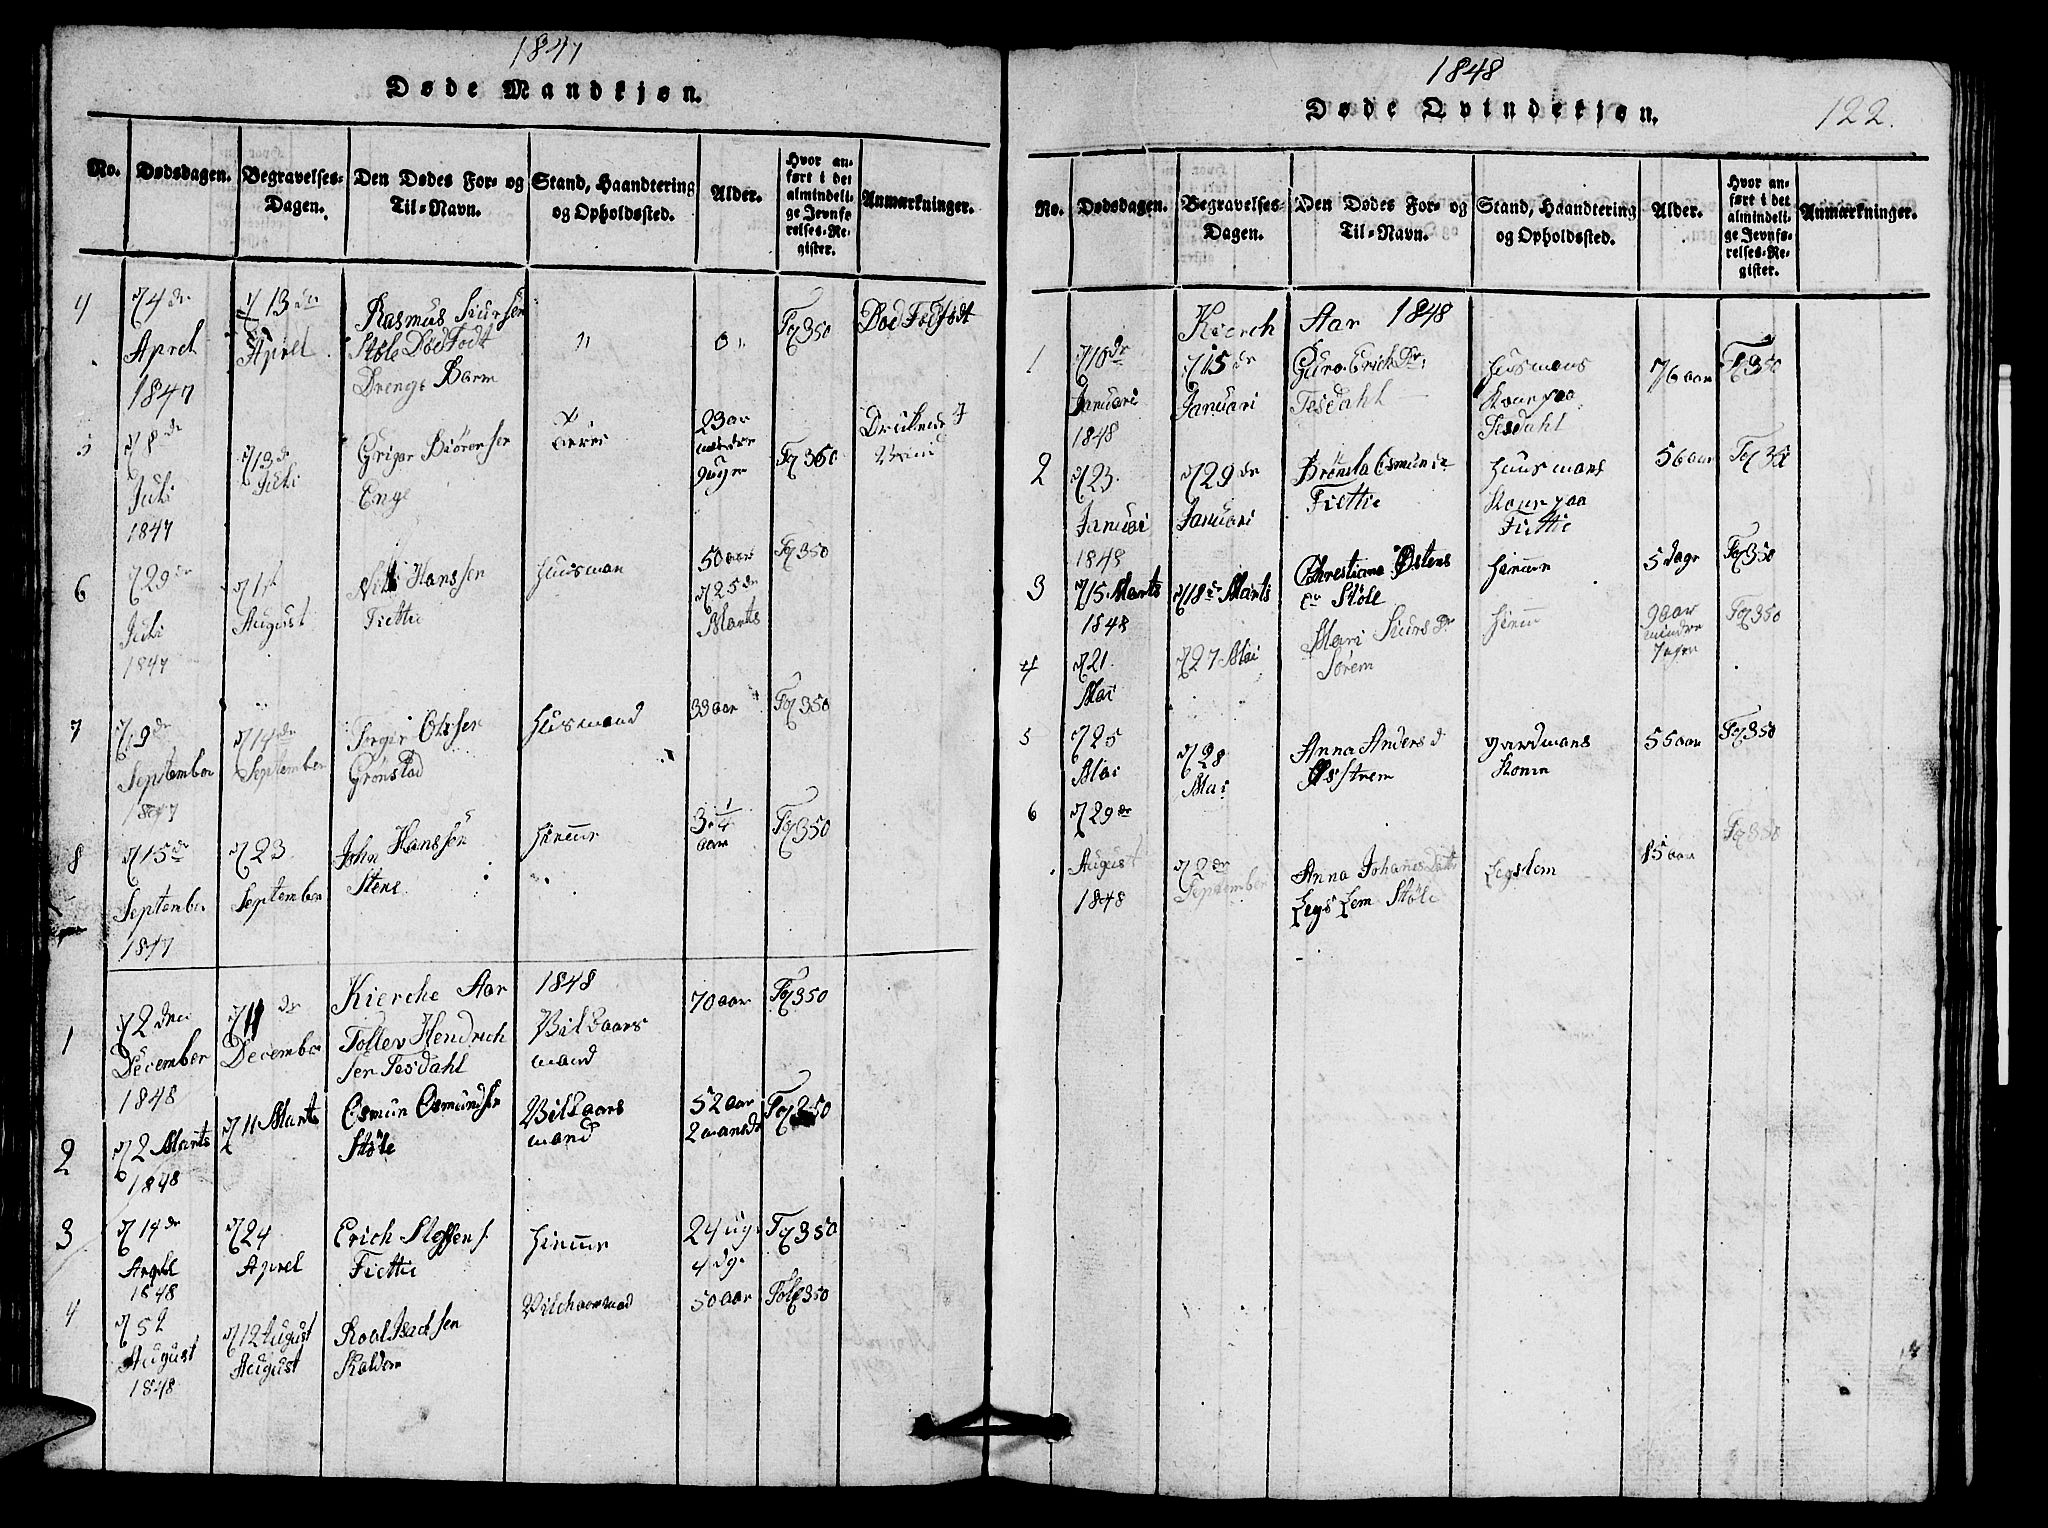 1847
Døde Mandkjøn.
No.
Dødsdagen.
Begravelses-
Dagen.
Den Dødes For- og
Til-Navn.
Stand, Haandtering
og Opholdssted.
Alder.
Hvor an-
ført i det
almindeli-
ge Jevnfø-
relses-Re-
gister.
Anmærkninger.
4
4de
Aprel
1847
13de
Aprel
Rasmus Siursen
Støle Død Født
Drenge Barm
"
0
350
Død Født
8de
Juli
1847
13de
Juli
Grigar Biørensen
Enge
23 ar
mindre
9 uger
360
6
29de
Juli
1847
1st
August
Nils Hanssen
Fiettie
Huusman
50 aar
25de
Marts
350
7
9de
September
1847
14de
September
Grønstad
Husmand
33 aar
350
8
15de
September
1847
23
September
John Hanssen
Stene
3 1/4
aar
350
Kierche Aar 1848
1
2den
December
1848
11de
December
Tollev Hendrich
sen Tesdahl
Vilkaars
mand
70 aar
350
2
2 Marts
1848
11 Marts
Osmun Osmundsen
Støle
Vilkaars
mand
52 aar
350
3
14de
Aprel
1848
24
Aprel
Erich Steffens.
Fiettie
24 ug.
4 dg.
350
4
52
August
1848
12 August
August
Roal Isachsen
50 aar
350
1848
Døde Qvindekjøn.
122.
No.
Dødsdagen.
Begravelses-
Dagen.
Den Dødes For- og
Til-Navn.
Stand, Haandtering
og Opholdssted.
Alder.
Hvor an-
ført i det
almindeli-
ge Jevnfø-
relses-Re-
gister.
Anmærkninger.
Kierch Aar 1848
1
10de
Januari
1848
15de
Januari
Guro Erich Dr:
Tesdahl
Husmans
Kone paa
Tesdahl
76 aar
350
2
23.
Januari
1848
29de
Januari
Fiettie
Huusmans
Kone paa
Fiettie
56 aar
3
15 Marts
1848
18de Marts
Chrestiana Østens
Dr Støle
5 dage
350
4
21.
Mai
27 Mai
Mari Siurs Dr
Sørem
9 aar
mindre
7 uger
350
5
25
Mai
28
Mai
Anna Anders d
Østrem
gardmans
Konen
55 aar
350
6
29de
August
1848
2de
September
Anna Johanes Datter
Legs Lem Støle
Legslem
85 aar
350